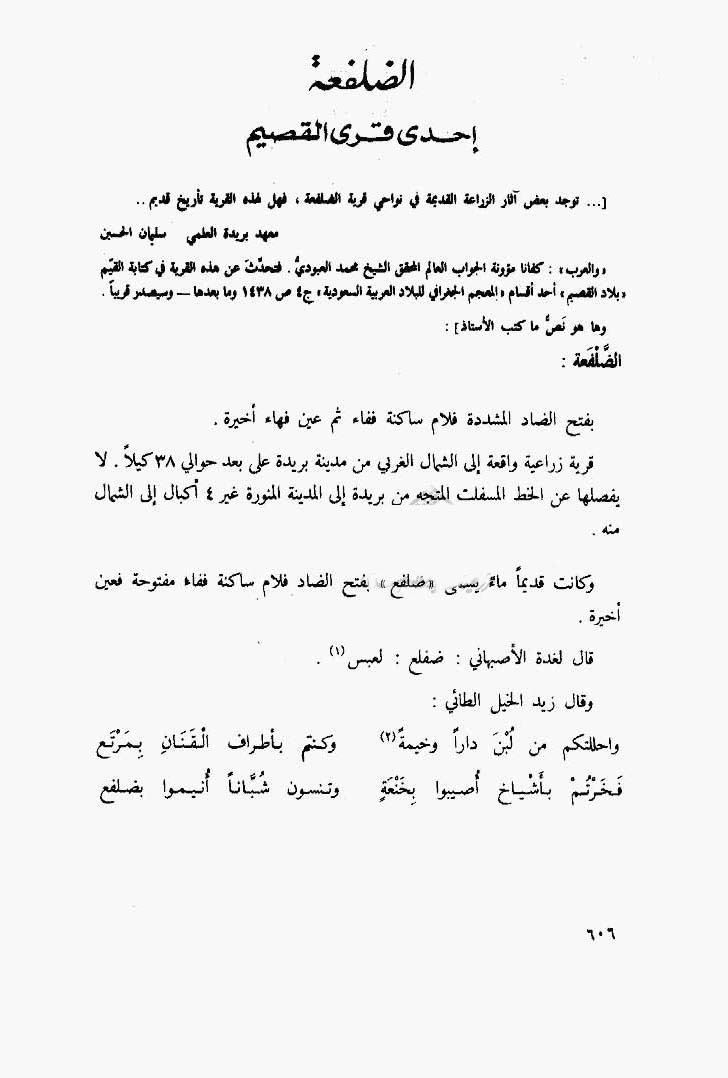 الضلفعة
إحدى قرى القصيم
[... توجد بعض آثار الزراعة القديمة في نواحي قرية الضلفعة ، فهل لهذه القرية تأريخ قديم ..
معهد بريدة العلمي    سليمان الحسين
«والعرب» : كفانا مؤونة الجواب العالم المحقق الشيخ محمد العبوديُّ . فتحدَّث عن هذه القرية في كتابة القيِّم
«بلاد القصيم» أحد أقسام «المعجم الجغرافي للبلاد العربية السعودية» ج٤ ص ١٤٣٨ وما بعدها — وسيصدر قريباً .
وها هو نَصُّ ما كتب الأستاذ] :
الضَّلْفَعة :
بفتح الضاد المشددة فلام ساكنة ففاء ثم عين فهاء أخيرة .
قرية زراعية واقعة إلى الشمال الغربي من مدينة بريدة على بعد حوالي ٣٨ كيلاً . لا
يفصلها عن الخط المسفلت المتجه من بريدة إلى المدينة المنورة غير ٤ أكبال إلى الشمال
منه .
وكانت قديماً ماءً يسمى «ضلفع» بفتح الضاد فلام ساكنة ففاء مفتوحة فعين
أخيرة .
قال لغدة الأصبهاني : ضفلع : لعبس(١) .
وقال زيد الخيل الطائي :
واحللتكم من لُبْنَ داراً وخيمةً(٢)    وكنتم بأطراف الْقَنَانِ بِمَرْتَع
فَخَرْتُمْ بأَشْياخ أُصيبوا بِخَنْعَةٍ    وتنسون شُبَّاناً أُنيموا بضلفع
٦٠٦